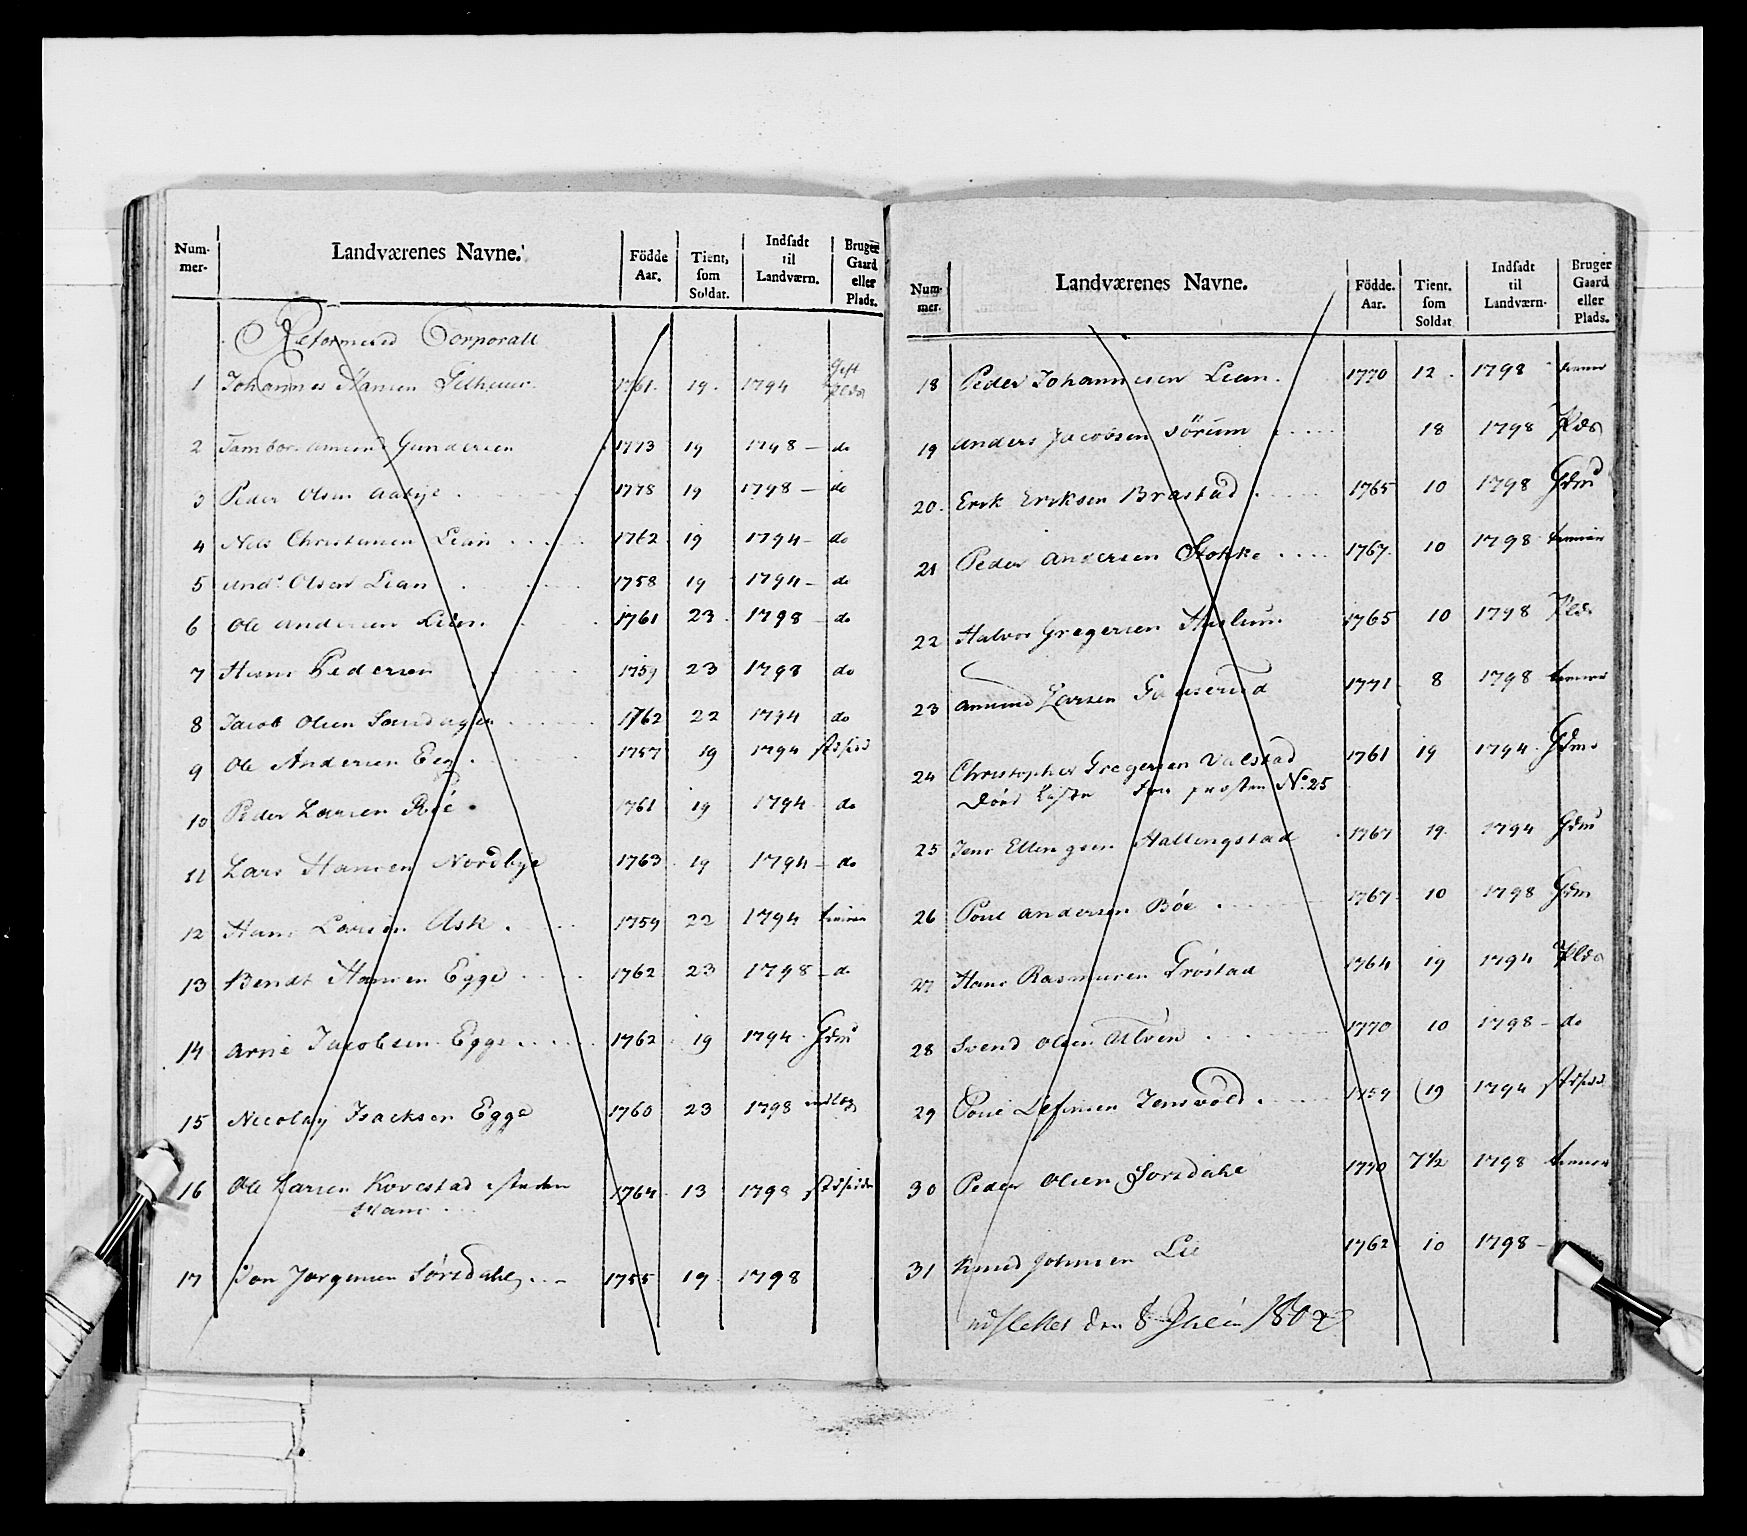 Num-
mer.
Landværenes Navne.
Födde
Aar.
Tient,
som
Soldat.
Indsadt
til
Landværn.
Bruger
Gaard
eller
Plads.
Reformered Corporall
1 Johannes Hansen 1761. 19. 1794 Gift Plds
2 Tambor Amund Gundersen 1773 19 1798 — do
3 Peder Olsen Aabye 1778 19 1798 — do
4 Nels Christensen Lian 1762 19 1794 — do
5 And: Olsen Lian 1758 19 1794 — do
6 Ole Andersen Lien 1761 23 1798 — do
7 Hans Pedersen 1759 23 1798 do
8 Jacob Olsen 1762 22 1794 do
9 Ole Andersen Eeg 1757 19 1794
10 Peder Larsen Röe 1761 19 1794 do
11 Lars Hansen Nordbye 1763 19 1794 — do
12 Hans Larsen Ask 1759 22 1794
13 Bendt Hansen Egge 1762 23 1798 — do
14 Arne Jacobsen Egge 1762 19 1794 Gdm
15 Nicolay Isacksen Egge 1760 23 1798 indlog
16 Ole Larsen Kovestad 1764 13 1798
17 Jon Jörgensen Sörsdahl 1755 19 1798
Num-
mer.
Landværenes Navne.
Födde.
Aar.
Tient.
som
Soldat
Indsadt
til
Landværn.
Bruger
Gaard
eller
Plads.
18 Peder Johannesen Lian. 1770 12. 1798
19 Anders Jacobsen Sörum 18 1798 Plds
20. Erik Eriksen Brastad 1765 10 1798 Gdm
21 Peder Andersen Stokke 1767. 10 1798
22 Halvor Gregersen Haslum 1765 10 1798 Plds
23 Amund Larsen 1771 8 1798
24 Christopher Gregersen Valstad 1761 19 1794. Gdm
No 25
25 Jens Ellingsen Hallingstad 1767 19. 1794 Gdm
26 Poul Andersen Böe 1767 10 1798 Gdm
27 Hans Rasmusen Gröstad 1764 19 1794 Plds
28 Svend Olsen Ulven 1770 10 1798 — do
29 Poul Jensvold 1759 19 1794
30 Peder Olsen Sorsdahl 1770 7½ 1798
31 Knud Johnsen Lie 1762 10 1798 —
udslettet den 8 1802